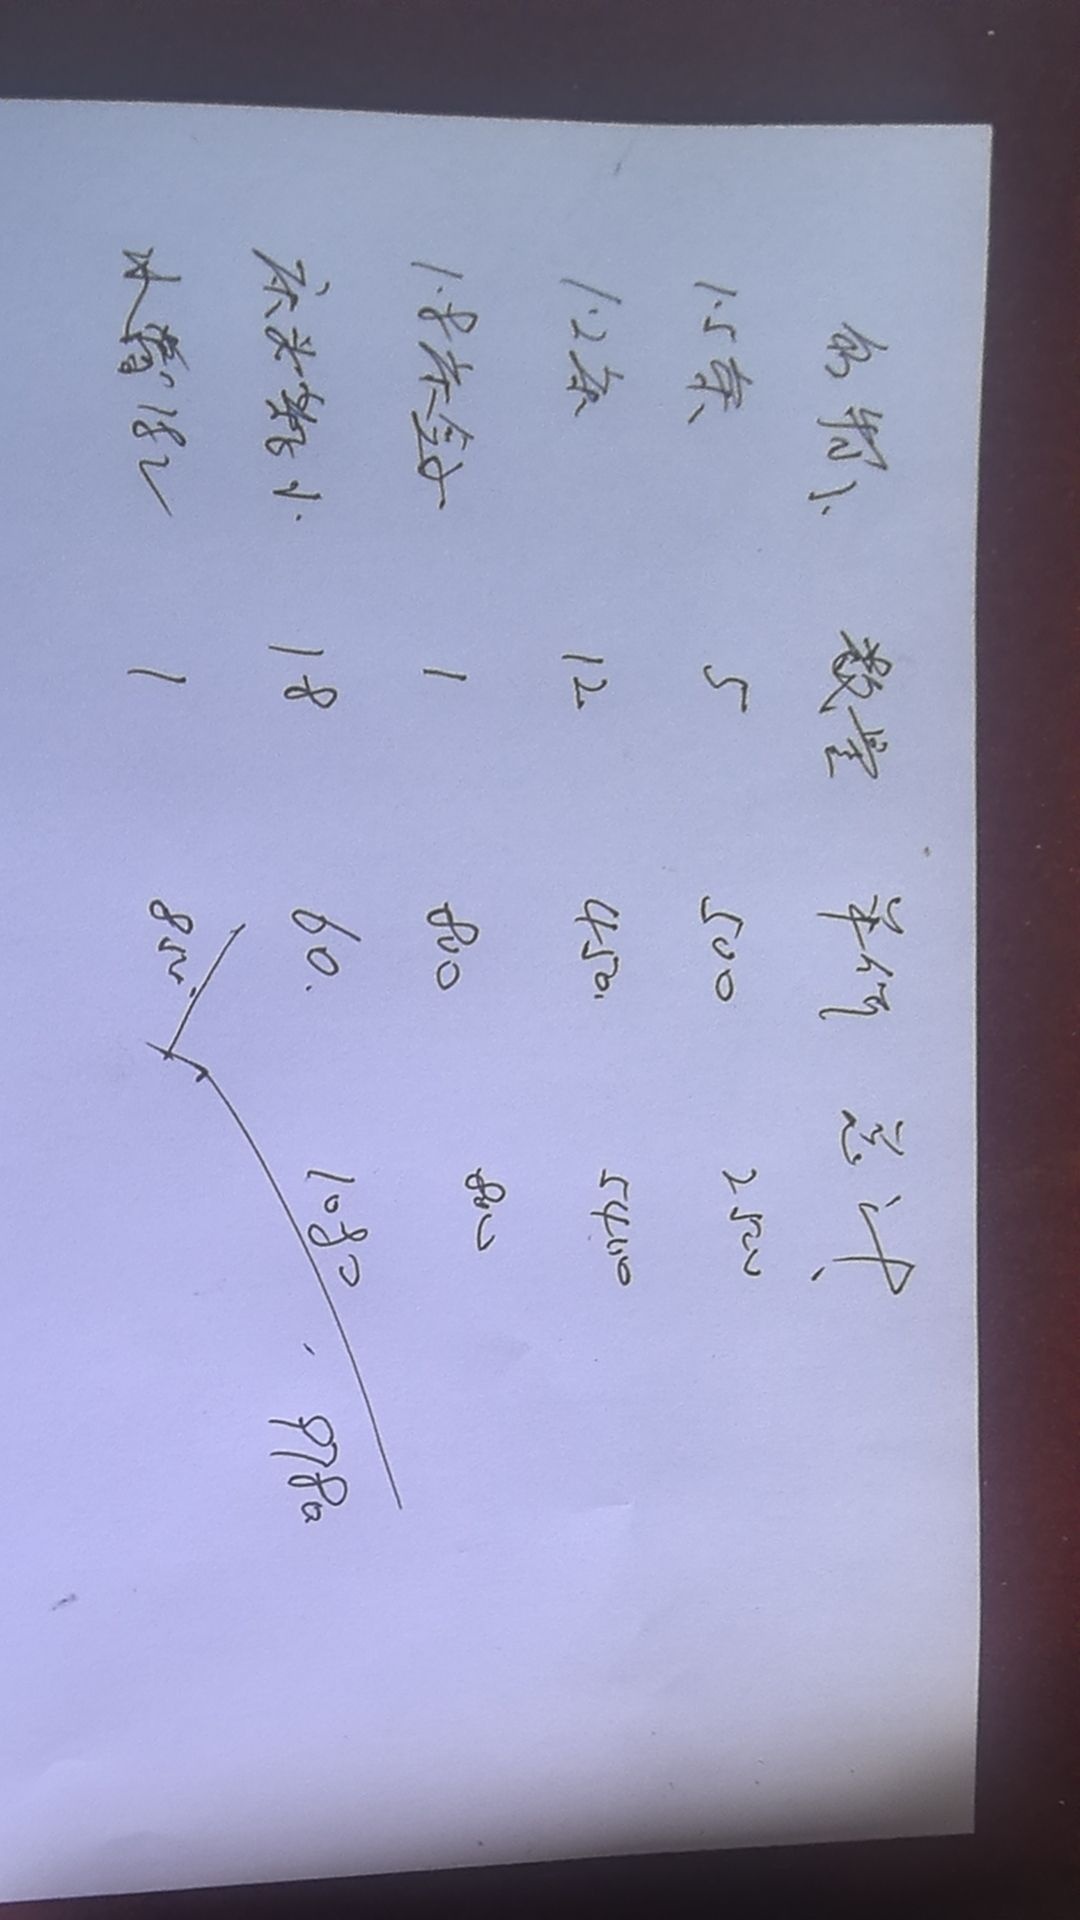 名称 数量 单价 总计
1.5床 5 500 2500
1.2床 12 450. 5400
1.8床 1 800 800
床头柜 18 60. 1080
1.8 1 850.
9780